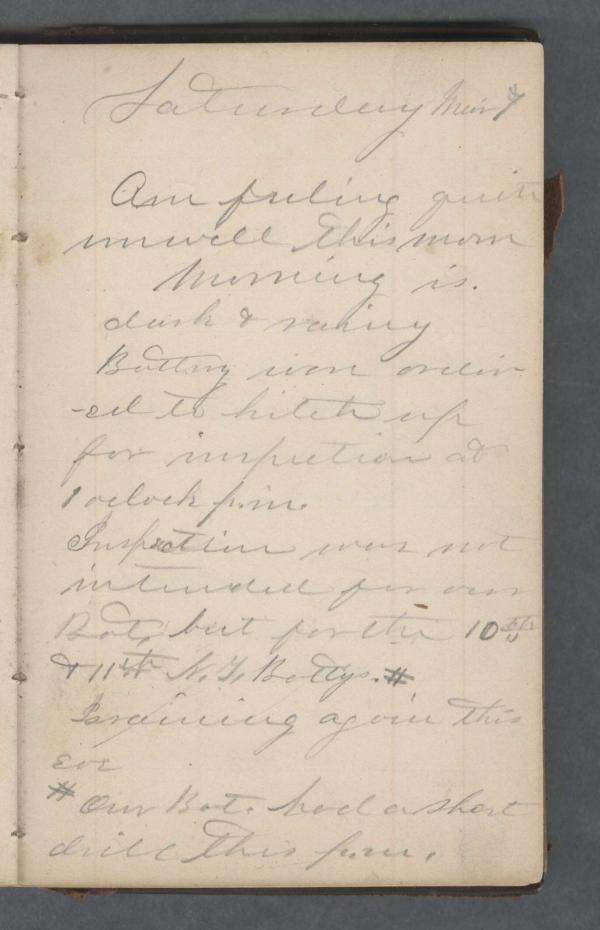 Saturday Mar 7
Am feeling quite
unwell this morn
Morning is.
dark & rainy
Battry was order
-ed to hitch up
for inspection at
1 oclock p.m.
Inspection was not
intended for our
Bat, but for the 10th
& 11th N.Y. Battys. #
Is raining again this
eve
# Our Bat. had a short
drill this p.m.